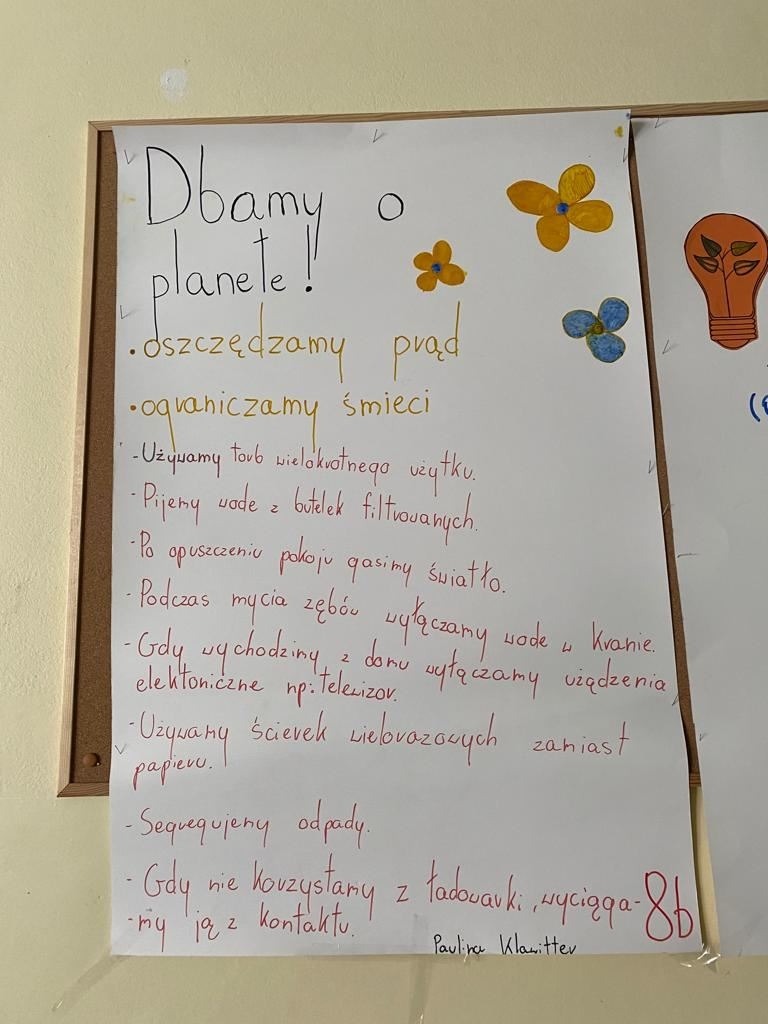 Dbamy o
planete!
• oszczędzamy prąd
• ograniczamy śmieci
- Używamy torb wielokrotnego użytku.
- Pijemy wode z butelek filtrowanych.
- Po opuszczeniu pokoju gasimy światło.
- Podczas mycia zębów wyłączamy wode w kranie.
- Gdy wychodzimy z domu wyłączamy użądzenia
elektoniczne np: telewizor.
- Używamy ścierek wielorazowych zamiast
papieru.
- Segregujemy odpady.
- Gdy nie korzystamy z ładowarki, wyciąga-
-my ją z kontaktu.
8b
Paulina Klawitter